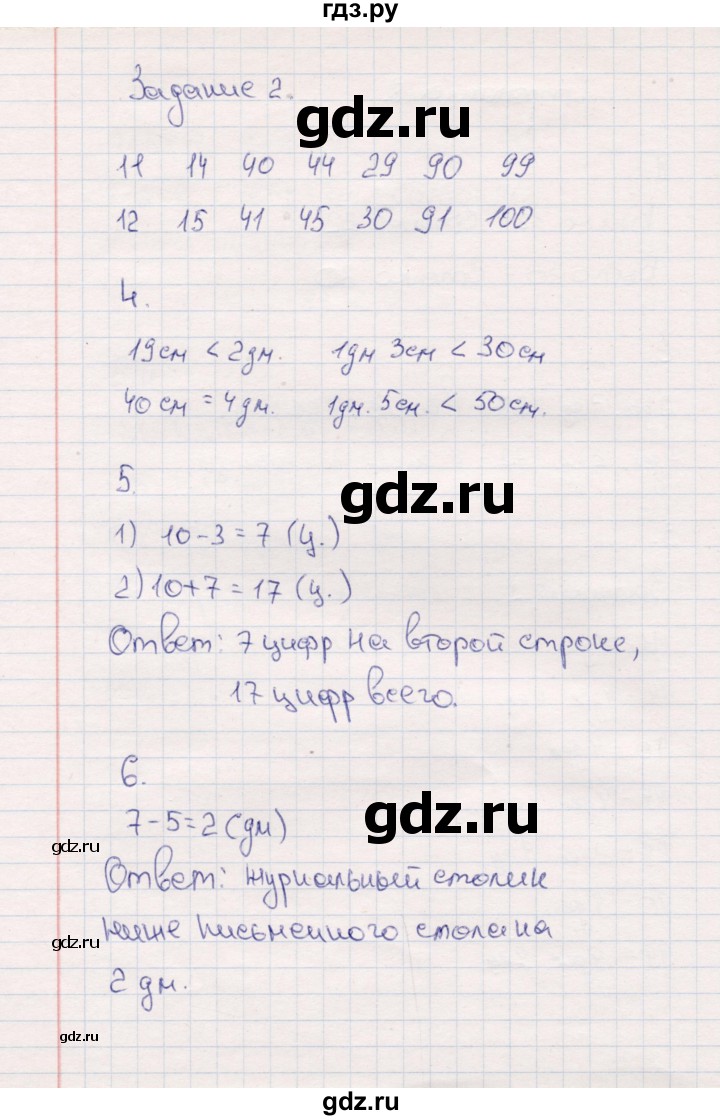 гдз.ру
Задание 2.
gdz.ru
11 14 40 44 29 90 99
12 15 41 45 30 91 100
4.
19см < 2дм. 1дм 3см < 30см
40см = 4дм. 1дм. 5см. < 50см.
5.
gdz.ru
1) 10-3=7 (ц.)
2) 10+7=17 (ц.)
Ответ: 7 цифр на второй строке,
17 цифр всего.
6.
gdz.ru
7-5=2 (дм)
gdz.ru
Ответ: журнальный столик
ниже письменного стола на
gdz.ru
2 дм.
gdz.ru
gdz.ru